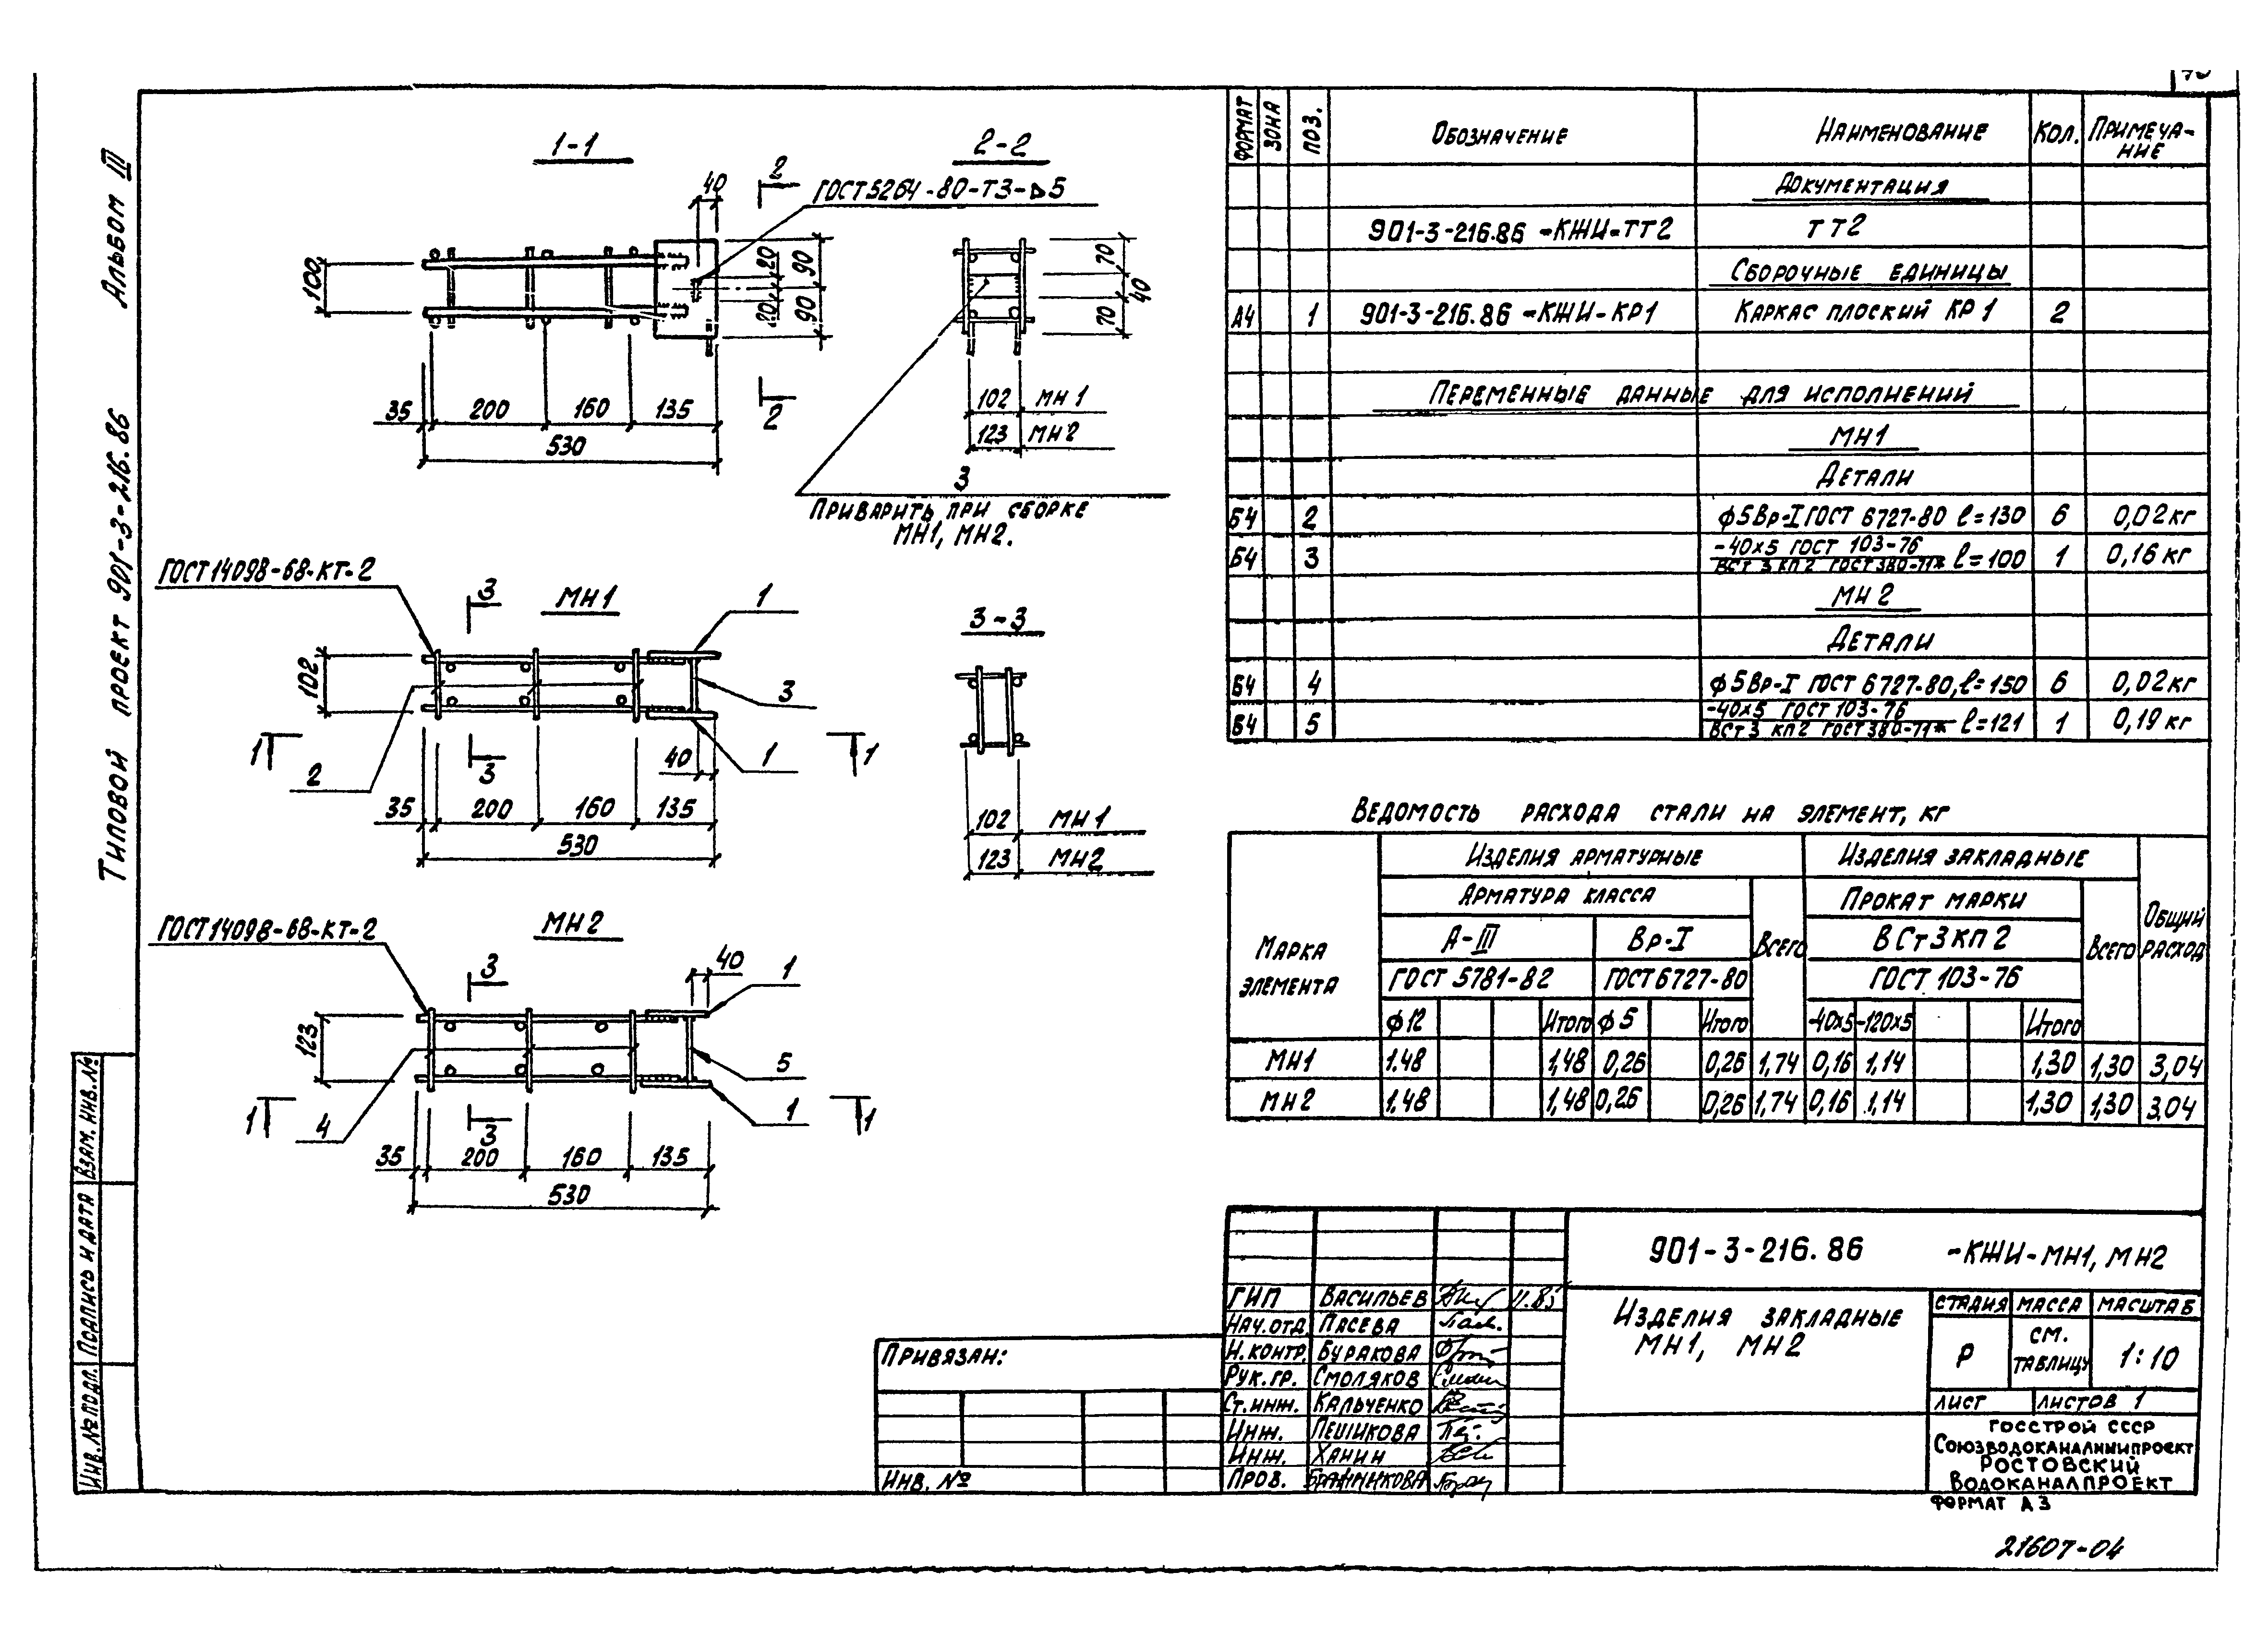 Альбом III
Типовой проект 901-3-216.86
Взам. инв. №
Подпись и дата
Инв. № подл.
1-1
2-2
40
2
ГОСТ 5264-80-Т3-⊳5
100
20
90
20
90
70
40
70
35
200
160
135
2
530
102
МН 1
123
МН 2
3
Приварить при сборке
МН1, МН2.
ГОСТ 14098-68-КТ-2
3
МН1
1
3-3
102
3
1
1
2
3
40
1
1
35
200
160
135
530
102
МН 1
123
МН2
ГОСТ 14098-68-КТ-2
МН2
3
40
1
123
5
1
1
4
3
1
35
200
160
135
530
Формат
Зона
Поз.
Обозначение
Наименование
Кол.
Примеча-
ние
Документация
901-3-216.86 -КЖИ-ТТ2
ТТ2
Сборочные единицы
А4
1
901-3-216.86 -КЖИ-КР1
Каркас плоский КР1
2
Переменные данные для исполнений
МН1
Детали
Б4
2
ϕ5Вр-I ГОСТ 6727-80 ℓ=130
6
0,02кг
Б4
3
-40х5 ГОСТ 103-76
ВСт 3 кп 2 ГОСТ 380-71* ℓ=100
1
0,16кг
МН 2
Детали
Б4
4
ϕ5Вр-I ГОСТ 6727-80, ℓ=150
6
0,02кг
Б4
5
-40х5 ГОСТ 103-76
ВСт 3 кп 2 ГОСТ 380-71* ℓ=121
1
0,19кг
Ведомость расхода стали на элемент, кг
Марка
элемента
Изделия арматурные
Изделия закладные
Общий
расход
Арматура класса
Всего
Прокат марки
Всего
А-III
Вр-I
ВСт3кп2
ГОСТ 5781-82
ГОСТ 6727-80
ГОСТ 103-76
ϕ12
Итого
ϕ5
Итого
-40х5
-120х5
Итого
МН1
1.48
1,48
0,26
0,26
1,74
0,16
1,14
1,30
1,30
3,04
МН2
1.48
1,48
0,26
0,26
1,74
0,16
1,14
1,30
1,30
3,04
901-3-216.86 -КЖИ-МН1, МН2
ГИП
Васильев
11.85
Нач.отд.
Пасева
Н.контр.
Буракова
Рук.гр.
Смоляков
Ст.инж.
Кальченко
Инж.
Пешикова
Инж.
Ханин
Пров.
Бражникова
Изделия закладные
МН1, МН2
Стадия
Масса
Масштаб
Р
см.
таблицу
1:10
Лист
Листов 1
Госстрой СССР
Союзводоканалниипроект
Ростовский
Водоканалпроект
Привязан:
Инв. №
Формат А3
21607-04